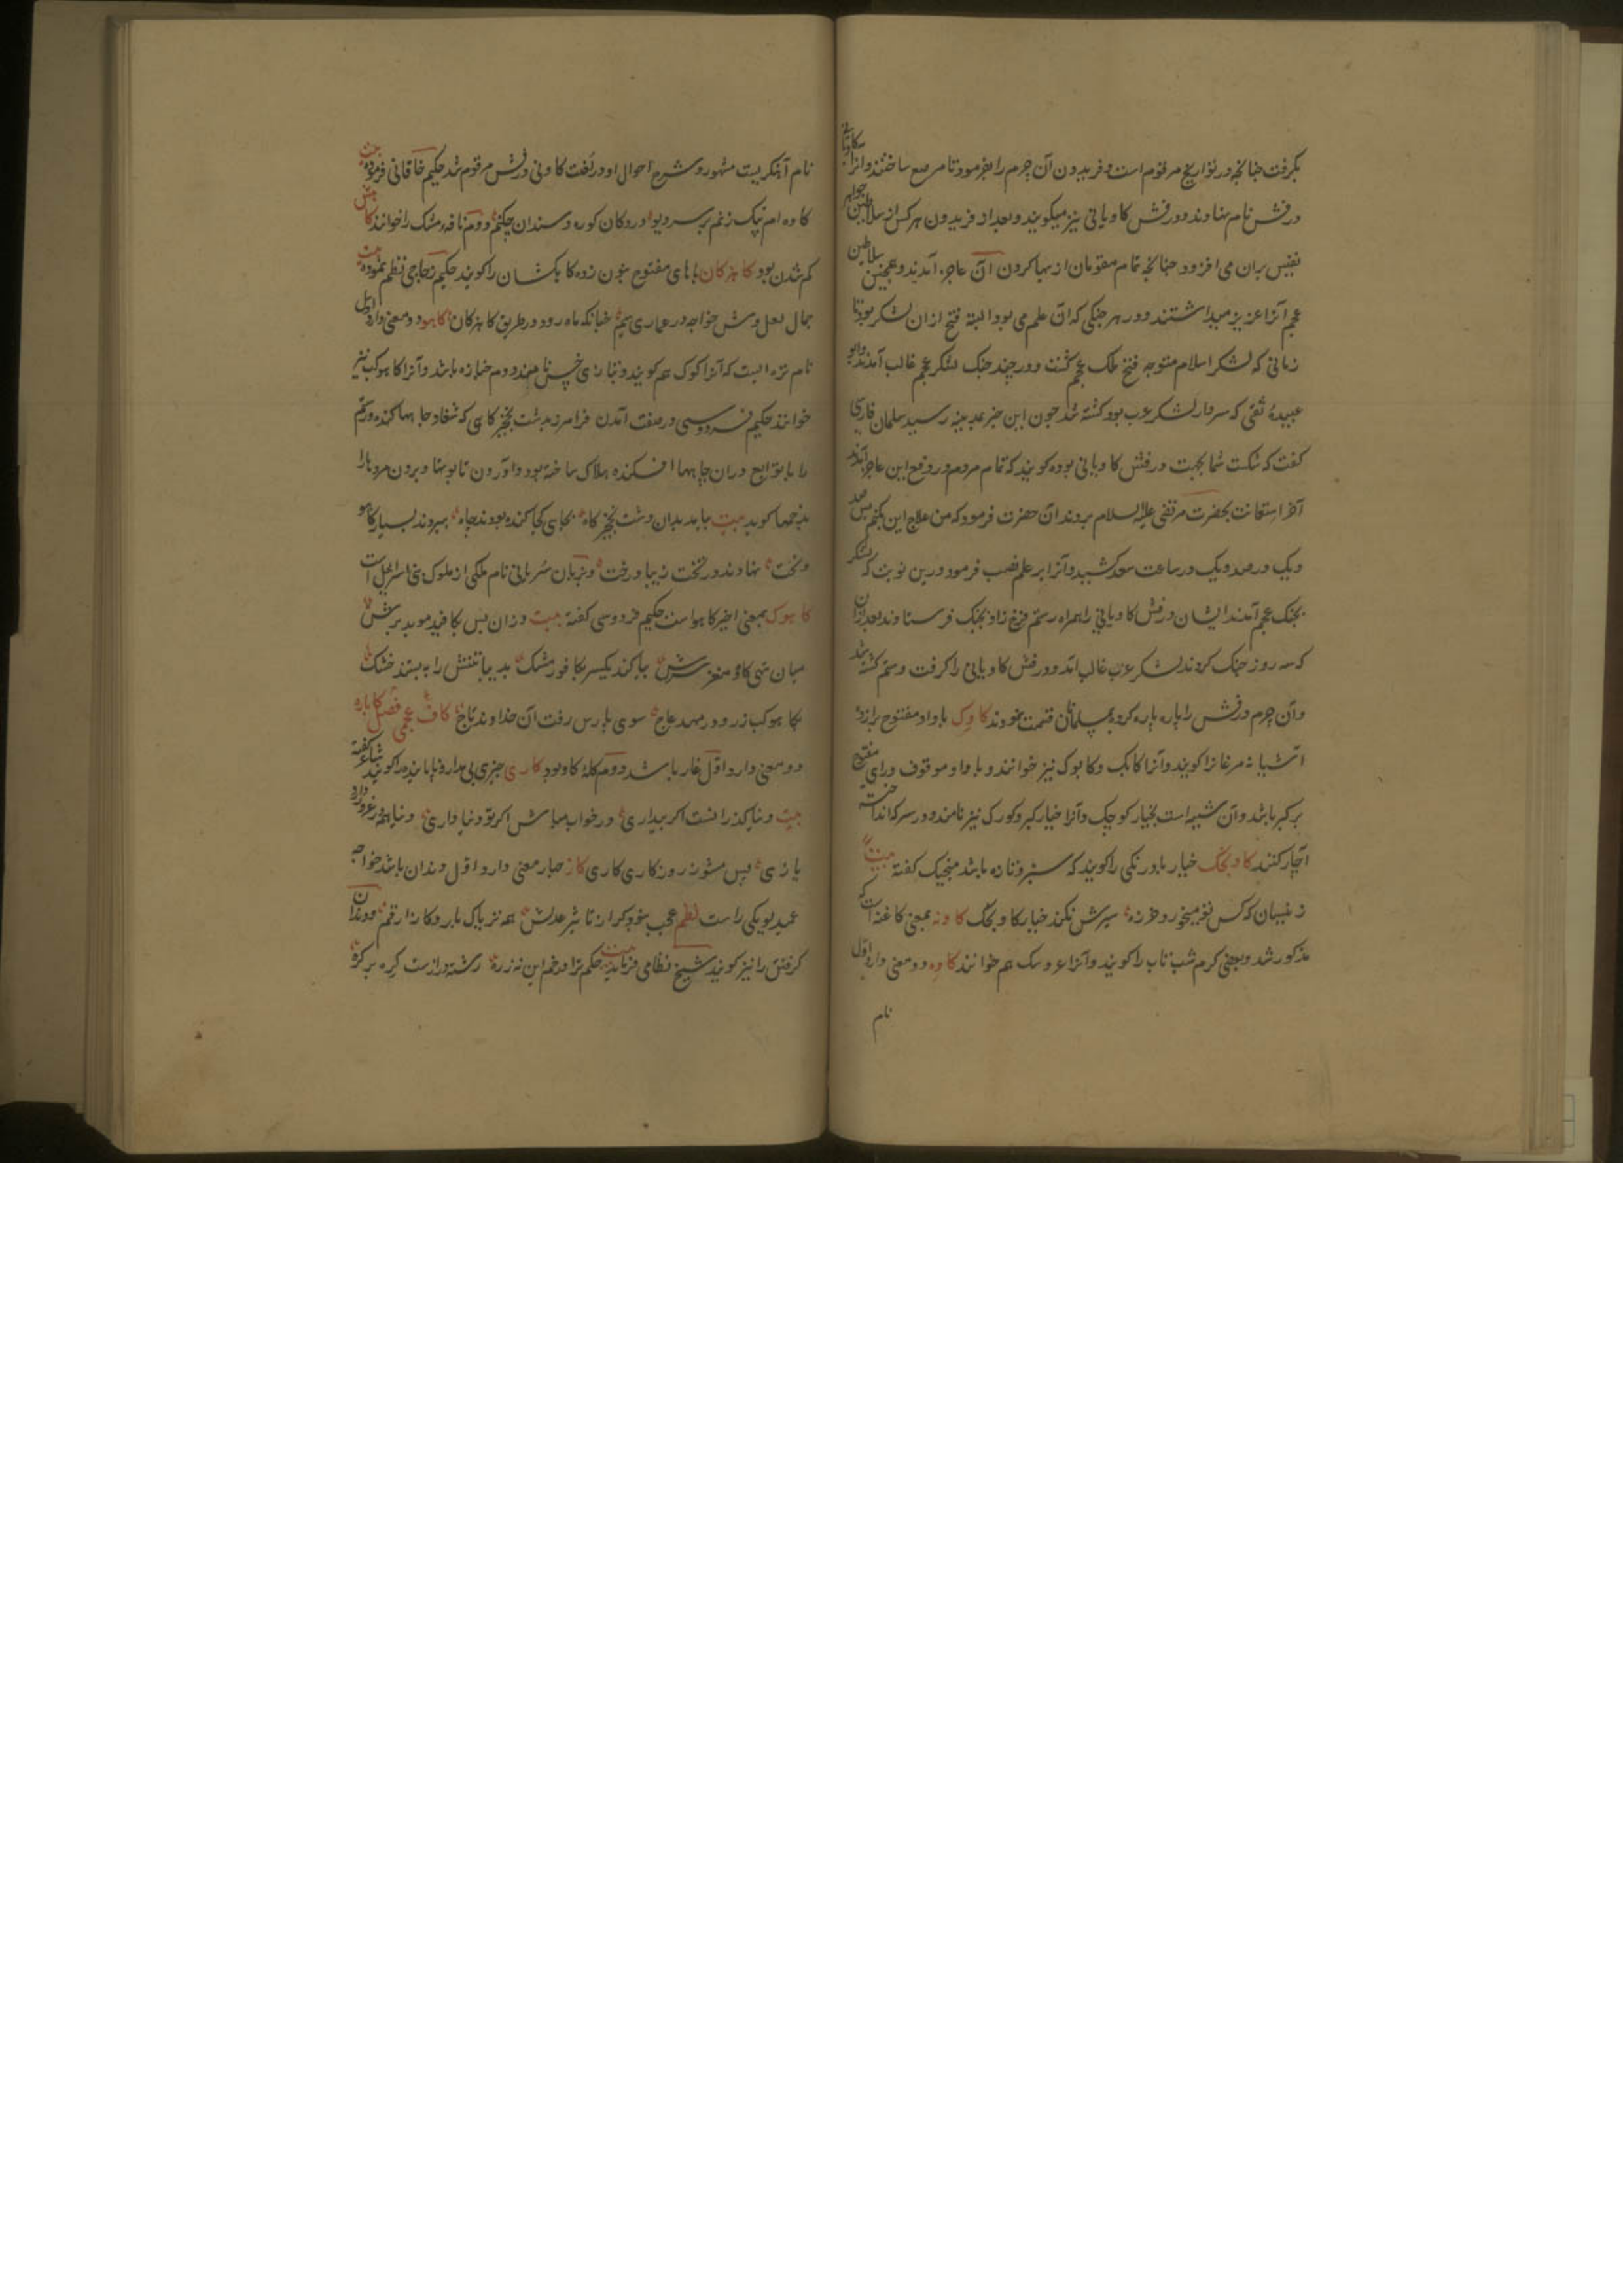 بکرفت چنانچه در تواریخ مرقوم است و فریدون آن چرم را بفرمود تا مرصع ساختند و آنرا کاویانی
درفش نام نهادند و درفش کاویانی نیز میکویند و بعد از فریدون هر کس از سلاطین جواهر
نفیس بران می افزود چنانچه تمام مقومان از بهاکردن آن عاجز آمدند و همچنین سلاطین
عجم آنرا عزیز میداشتند و در هر جنکی که آن علم می بود البته فتح ازان لشکر بود تا
زمانی که لشکر اسلام متوجه فتح ملک عجم کشت و در چند جنک لشکر عجم غالب آمدند و ابو
عبیدهٔ ثقفی که سردار لشکر عرب بود کشته شد چون این خبر بمدینه رسید سلمان فارسی
کفت که شکست شما بجهت درفش کاویانی بوده کویند که تمام مردم در رفع این عاجز آمدند
آخر استعانت بحضرت مرتضی علیه السلام بردند آن حضرت فرمود که من علاج این بکنم پس صد
ویک در صد ویک در ساعت سعد کشید و آنرا بر علم نصب فرمود درین نوبت که لشکر
بجنک عجم آمدند ایشان درفش کاویانی را همراه رستم فرخ زاد بجنک فرستادند بعد ازان
که سه روز جنک کردند لشکر عرب غالب آمد و درفش کاویانی را کرفت و رستم کشته شد
و آن چرم درفش را پاره پاره کرده بمسلمانان قسمت نمودند کاوک با واو مفتوح برازده
آشیانه مرغانرا کویند و آنرا کابک و کابوک نیز خوانند و با واو موقوف و رای مفتوح
بر کبر باشد و آن شبیه است بخیار کوچک و آنرا خیار کبر و کورک نیز نامند و در سرکه انداخته
آچار کنند کاونجک خیار بادرنکی را کویند که سبز و تازه باشد منجیک کفته بیت
ز غیبان که کس نفو میخورد خرزه سیرش نکند خیار کاونجک کاونه بمعنی کاغنه است که
مذکور شد و بعضی کرم شب تاب را کویند و آنرا عروسک هم خوانند کاوه دو معنی دارد اول
نام
نام آهنکریست مشهور و شرح احوال او در لغت کاویانی درفش مرقوم شد حکیم خاقانی فرموده بیت
کاوه ام پتک زنم بر سر دیو در دکان کوره و سندان چکنم دوم نافه مشک را خوانند کاهش
کم شدن بود کاهزکان با های مفتوح بنون زده کاهکشان را کویند حکیم زجاجی نظم نموده بیت
جمال لعل وش خواجه در عماری سیم چنانکه ماه رود در طریق کاهزکان کاهو دو معنی دارد اول
نام تره ایست که آنرا کوک هم کویند و بتازی خس نامند دوم جنازه باشد و آنرا کاهوکب نیز
خوانند حکیم فردوسی در صفت آمدن فرامرز بدشت نخجیر کاهی که شغاد چاهها کنده و رستم
را با توابع دران چاهها افکنده هلاک ساخته بود و آوردن تابوتها و بردن مردهارا
بدخمها کوید بیت بیامد بدان دشت نخجیر کاه بجایی کجا کنده بودند چاه ببردند بسیار کاهو
و تخت نهادند در تخت زیبا درخت و بزبان سریانی نام ملکی از ملوک بنی اسرائیل است
کاهوک بمعنی اخیر کاهو است حکیم فردوسی کفته بیت وزان پس بکافید موبد برش
میان تهی کاه و مغز سرش بیاکند یکسر بکافور مشک بدیبا تنش را به بستند خشک
بکاهوکب زر و در مهد عاج سوی پارس رفت آن خداوند تاج کاف عجمی فصل کاباره
دو معنی دارد اول غار باشد دوم کلهٔ کاو بود کاری چیزی بی مدار و ناپاینده را کویند شاعر کفته
بیت دنیا کذرانست اکر بیداری در خواب مباش اکر تو دنیا داری دنیا همه
بازی پس مشو روزکاری کاری کاز چهار معنی دارد اول دندان باشد خواجه
عمید بویکی راست نظم عجب نبود کر از تاثیر عدلش همه تریاک بارد کاز ارقم و دندان
کرفتن را نیز کویند شیخ نظامی فرماید بیت حکم ترا در خم این نه زره رشته درازست کره بر کره